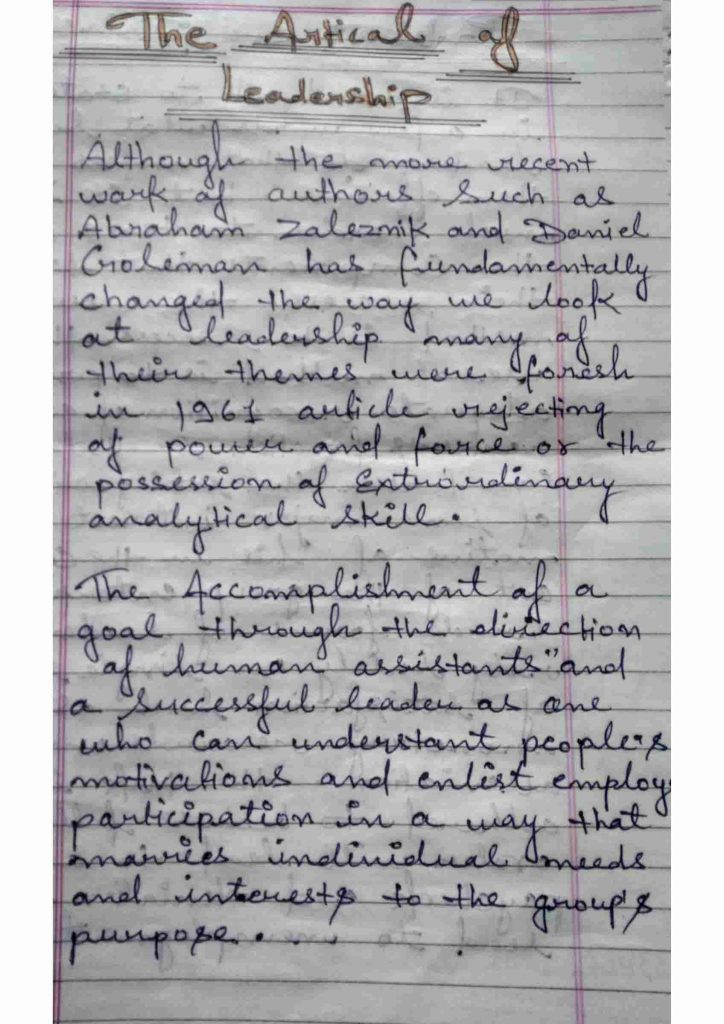 The Artical of
Leadership
Although the more recent
work of authors such as
Abraham Zaleznik and Daniel
Goleman has fundamentally
changed the way we look
at leadership many of
their themes were foresh
in 1961 article rejecting
of power and force or the
possession of Extraordinary
analytical skill.
The Accomplishment of a
goal through the direction
of human assistants" and
a successful leader as one
who can understant people's
motivations and enlist employ
participation in a way that
marries individual needs
and interests to the group's
purpose.